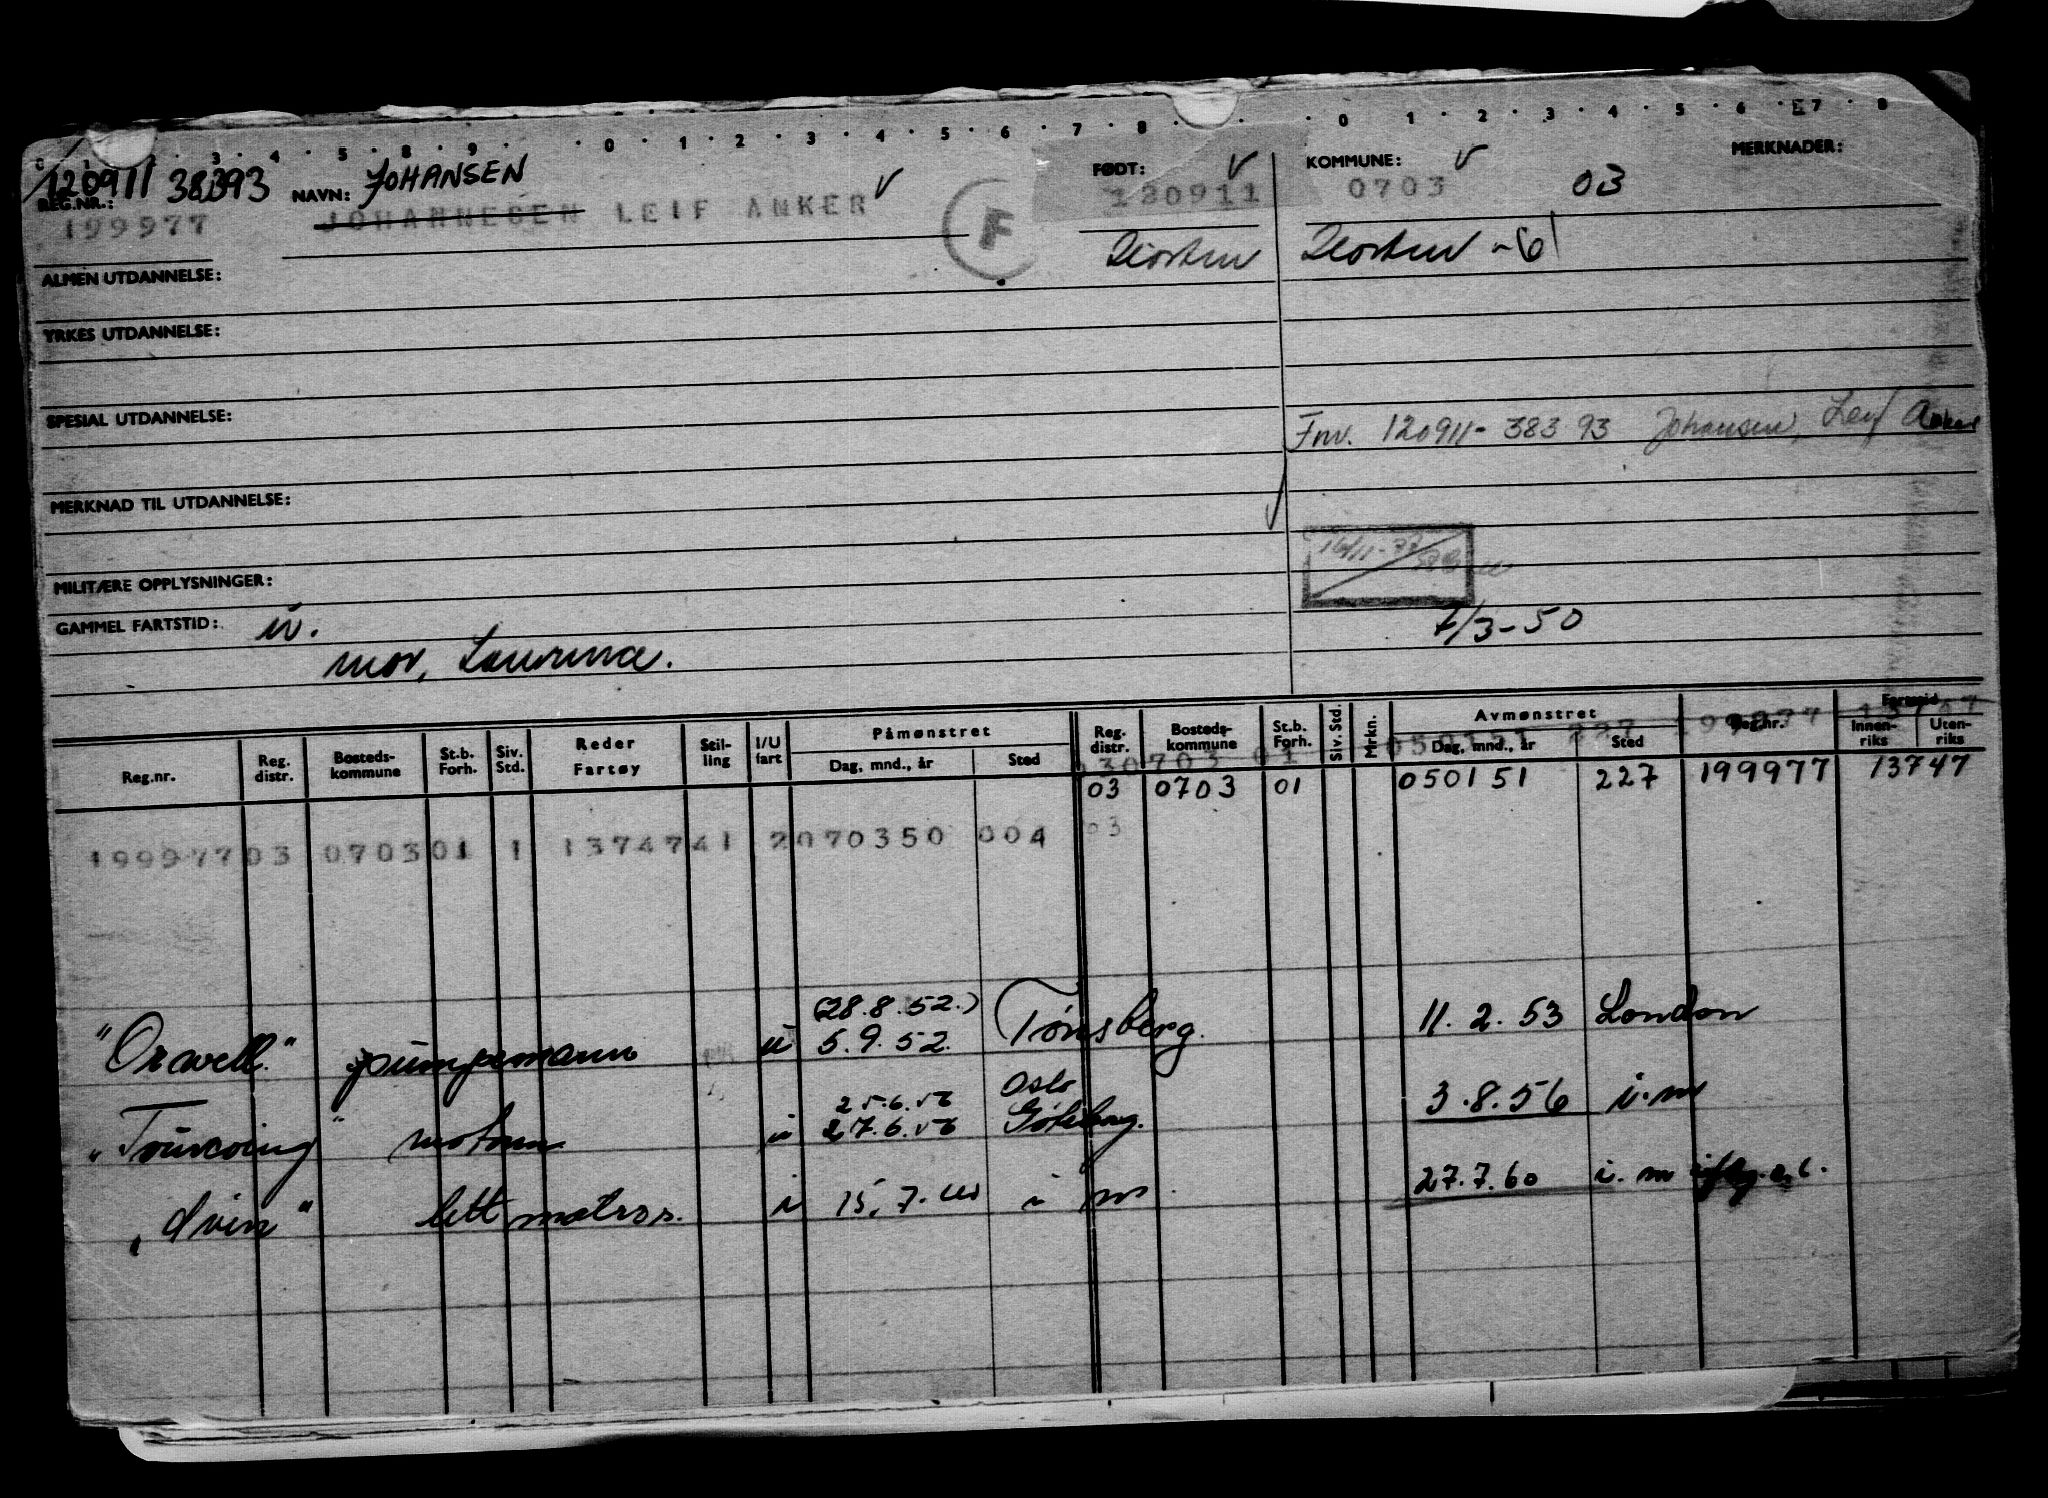 0 1 2 3 4 5 8 9 0 1 2 3 4 5 6 7 8 0 1 2 3 4 5 6 7 8
120911 38393 NAVN: JOHANSEN FØDT: V KOMMUNE: V MERKNADER:
REG.NR.: JOHANNESEN LEIF ANKER V F 120911 0703 03
199977
Horten Horten -61
ALMEN UTDANNELSE:
YRKES UTDANNELSE:
SPESIAL UTDANNELSE:
Fnr. 120911-38393 Johansen, Leif Anker
MERKNAD TIL UTDANNELSE:
MILITÆRE OPPLYSNINGER:
GAMMEL FARTSTID: 7/3-50
mor,
Reg.nr. Reg. distr. Bosteds-kommune St.b. Forh. Siv. Std. Reder Fartøy Stil-ling I/U fart Påmønstret Dag, mnd., år Sted Reg. distr. Bosteds-kommune St.b. Forh. Siv. Std. Mrkn. Avmønstret Dag, mnd., år Sted Reg.nr. Fartstid Innen-riks Uten-riks
03 0703 01 050151 227 199977 13747
199977 03 0703 01 1 13747 41 2 070350 004 03
(28.8.52.)
"Orwell." pumpemann u 5.9.52. Tønsberg. 11.2.53 London
25.6.56 Oslo
"Tourcoing" motorm u 27.6.56 Gøteborg. 3.8.56 i.m
"dvin" lett matros. i 15.7. i m 27.7.60 i. m